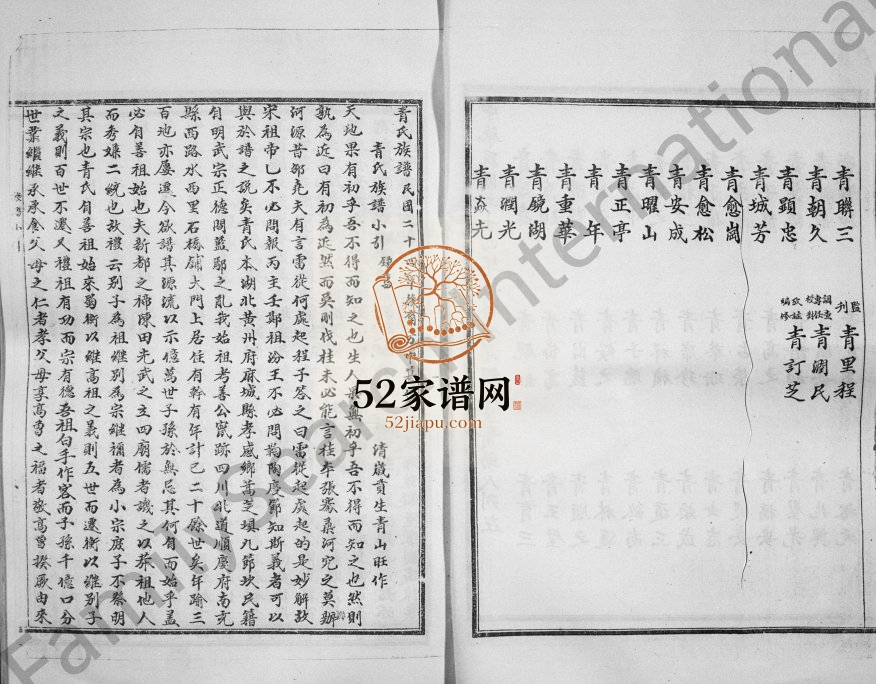 青聯三
青朝久
青顕忠
青城芳
青愈崗
青愈松
青安成
青曜山
青正亭
青年
青重華
青鏡湖
青潤光
青克
監刊 青里程
調查 專任 校對 青潤民
編修 青訂芝
青氏族譜民國二十四
青氏族譜小引 清歲貢生青山旺作
天地果有初乎吾不得而知之也生人果與初乎吾不得而知之也然則
孰為近曰有初為近然而吳剛伐桂未必能言桂本張騫桑河究之莫辦
河源昔邵堯夫有言雷從何處起程子答之曰雷從起處起的是妙解故
宋祖帝乙不必問報丙主壬鄭祖汾王不必問鞠陶慶節知斯義者可以
與於譜之說矣青氏本湖北黃州府麻城縣孝感鄉蒿芝垻九節坎民籍
自明武宗正德間藍鄢之亂我始祖考善公竄跡四川北道順慶府南充
縣西路水西里石橋舖大門上居住有幹有年計已二十餘世矣年踰三
百地亦屢遷今欲譜其源流以示億萬世子孫於無忘其何自而始乎蓋
必有善祖始也夫新都之禘陳田光武之立四廟儒者譏之以莽祖他人
而秀嫌二統也故禮云別子為祖繼別為宗繼禰者為小宗庶子不祭明
其宗也青氏自善祖始來蜀衡以繼高祖之義則五世而遷衡以繼別子
之義則百世不遷又禮祖有功而宗有德吾祖白手作客而子孫千億口分
世業繼繼承承食父母之仁者孝父母享高曾之福者敬高曾揆厥由來
52家谱网
52jiapu.com
Family Search International